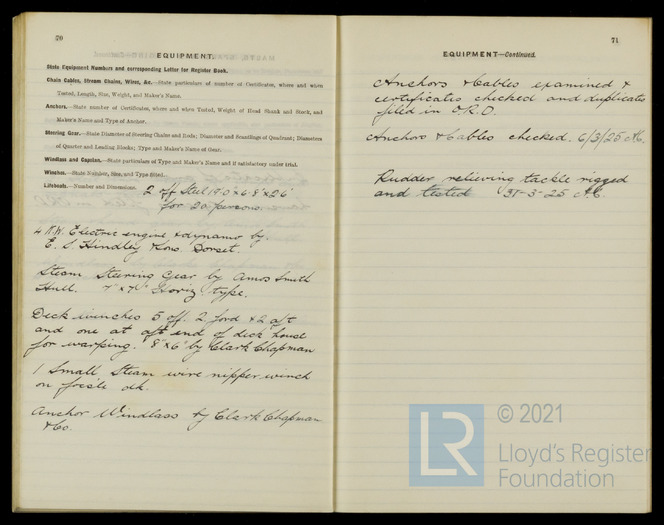 70
EQUIPMENT.
State Equipment Numbers and corresponding Letter for Register Book.
Chain Cables, Stream Chains, Wires, &c.—State particulars of number of Certificates, where and when
Tested, Length, Size, Weight, and Maker's Name.
Anchors.—State number of Certificates, where and when Tested, Weight of Head Shank and Stock, and
Maker's Name and Type of Anchor.
Steering Gear.—State Diameter of Steering Chains and Rods; Diameter and Scantlings of Quadrant; Diameters
of Quarter and Leading Blocks; Type and Maker's Name of Gear.
Windlass and Capstan.—State particulars of Type and Maker's Name and if satisfactory under trial.
Winches.—State Number, Size, and Type fitted.
Lifeboats.—Number and Dimensions. 2 off Steel
for 20 persons.
4 K.W. Electric engine & dynamo by
E. S. Hindley & Sons Dorset.
Steam Steering Gear by Amos Smith
Hull. Horiz type.
Deck winches 5 off. 2. ford & 2 aft
and one at aft end of deck house
for warping. 8" x 6" by Clark Chapman
1 Small Steam wire nipper winch
on focsle dk.
Anchor Windlass by Clark Chapman
& Co.
71
EQUIPMENT—Continued.
Anchors & Cables examined &
certificates checked and duplicates
filed in D.R.O.
Anchors & Cables checked. 6/3/25 A.C.
Rudder relieving tackle rigged
and tested 31-3-25 A.C.
© 2021
LR
Lloyd's Register
Foundation